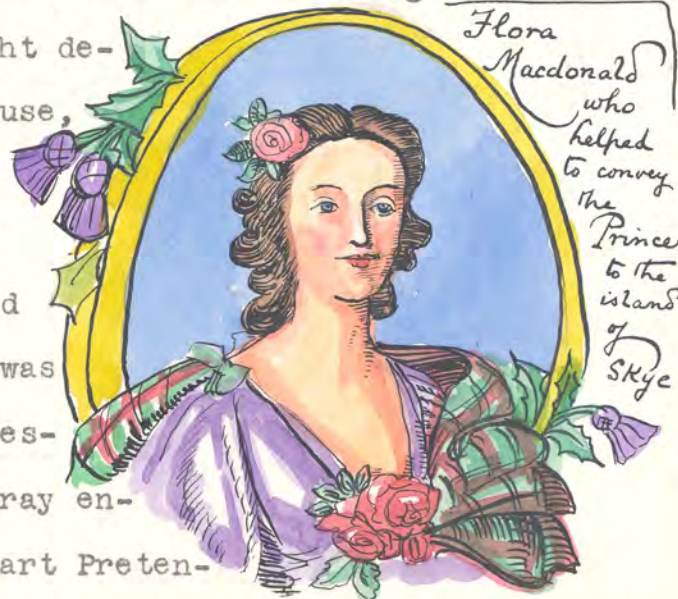 ht de-
use,
d
was
es-
ray en-
art Preten-
Flora
Macdonald
who
helped
to convey
the
Prince
to the
island
of
Skye